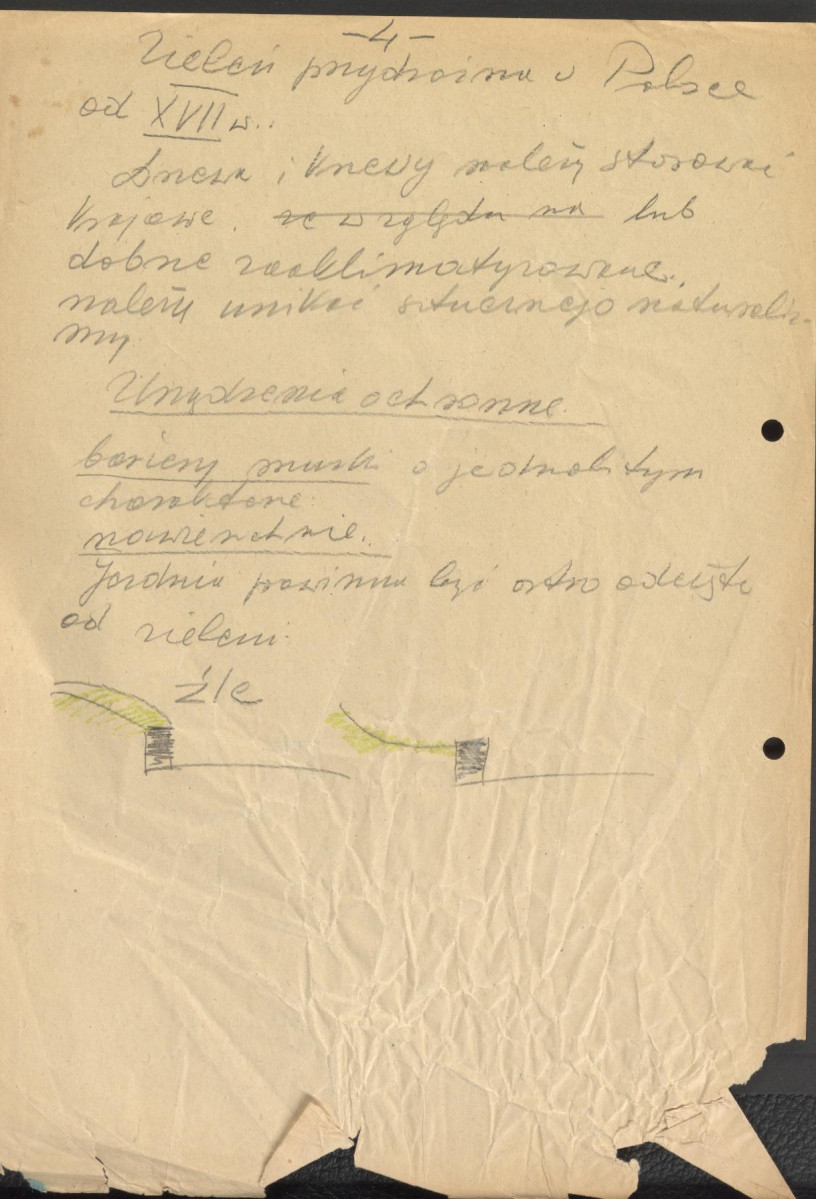 -4-
Zieleń przydrożna w Polsce
od XVII w.
Drzewa i krzewy należy stosować
krajowe. ze względu na lub
dobrze zaaklimatyzowane.
należy unikać sztucznego naturaliz-
mu.
Urządzenia ochronne.
bariery murki o jednolitym
charakterze.
nawierzchnie.
Jezdnia powinna być ostro odcięta
od zieleni.
źle